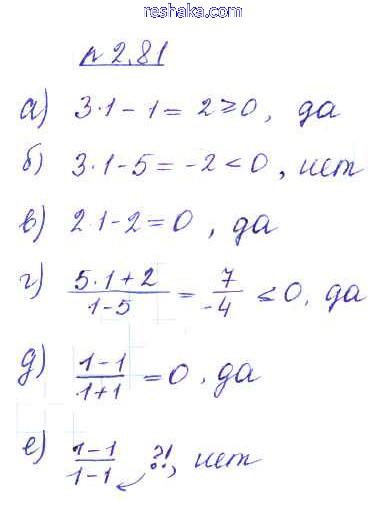 reshaka.com
н 2.81
а) 3·1-1=2≥0, да
б) 3·1-5=-2<0, нет
в) 2·1-2=0, да
г) (5·1+2)/(1-5) = 7/-4 ≤0, да
д) (1-1)/(1+1) = 0, да
е) (1-1)/(1-1) ?!, нет